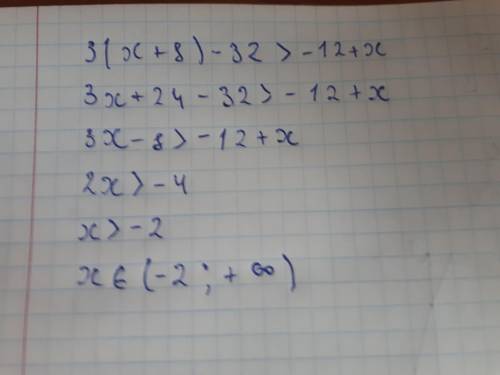 3(x+8)-32>-12+x
3x+24-32>-12+x
3x-8>-12+x
2x>-4
x>-2
x∈(-2;+∞)